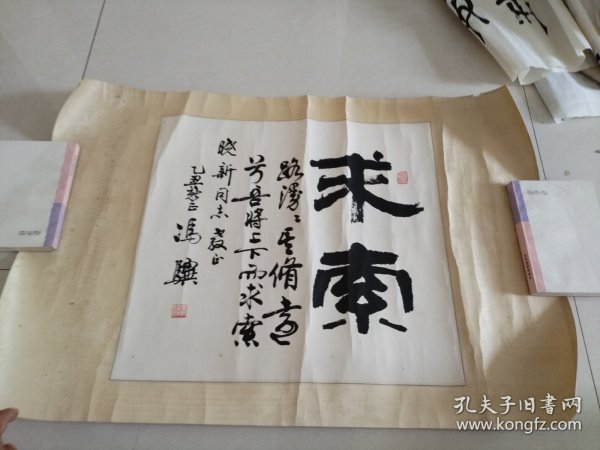 求索
路漫々其脩远
兮吾将上下而求索
晓新同志教正
乙丑
冯骥
孔夫子旧书网
www.kongfz.com